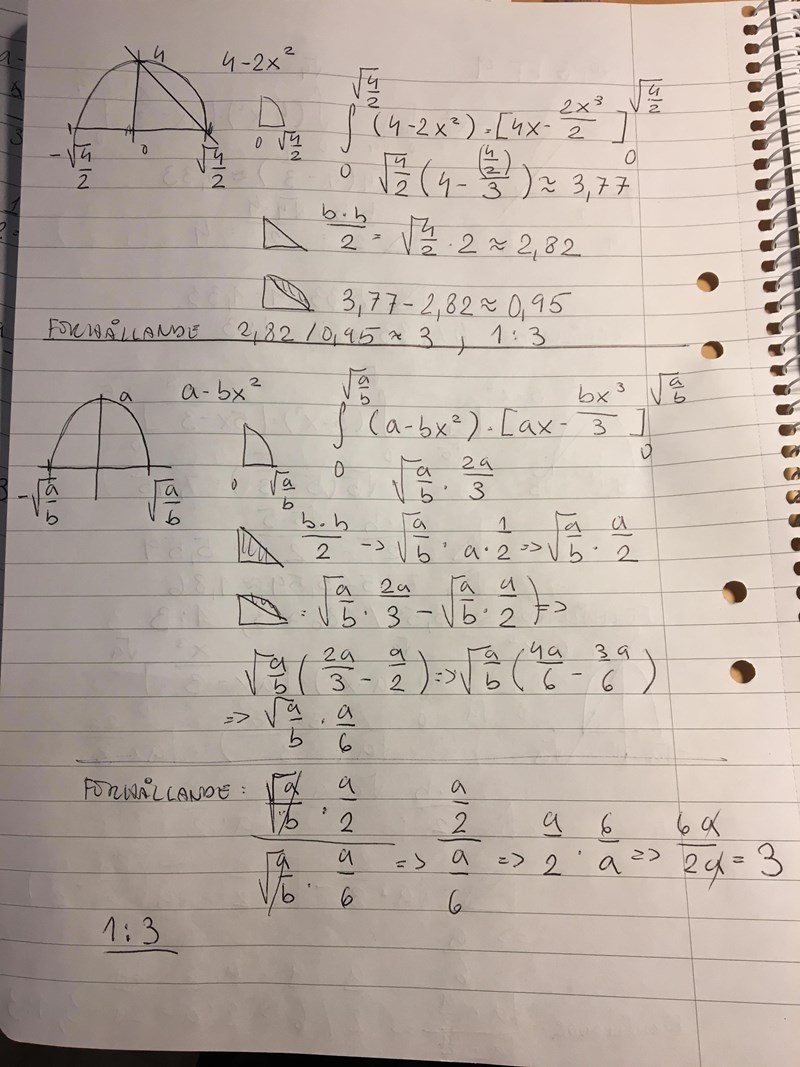 4   4-2x²
-√(4/2)   0   √(4/2)   0   √(4/2)   ∫₀^√(4/2) (4-2x²) = [4x - 2x³/2]₀^√(4/2)
√(4/2) (4 - (4/2)/3) ≈ 3,77
b·h/2 = √(4/2) · 2 ≈ 2,82
3,77 - 2,82 ≈ 0,95
FÖRHÅLLANDE 2,82 / 0,95 ≈ 3, 1:3
a   a-bx²
-√(a/b)   √(a/b)   0   √(a/b)   ∫₀^√(a/b) (a-bx²) = [ax - bx³/3]₀^√(a/b)
√(a/b) · 2a/3
b·h/2 -> √(a/b) · a · 1/2 => √(a/b) · a/2
= √(a/b) · 2a/3 - √(a/b) · a/2 =>
√(a/b) (2a/3 - a/2) => √(a/b) (4a/6 - 3a/6)
=> √(a/b) · a/6
FÖRHÅLLANDE: (√(a/b) · a/2) / (√(a/b) · a/6) => (a/2) / (a/6) => a/2 · 6/a => 6a/2a = 3
1:3